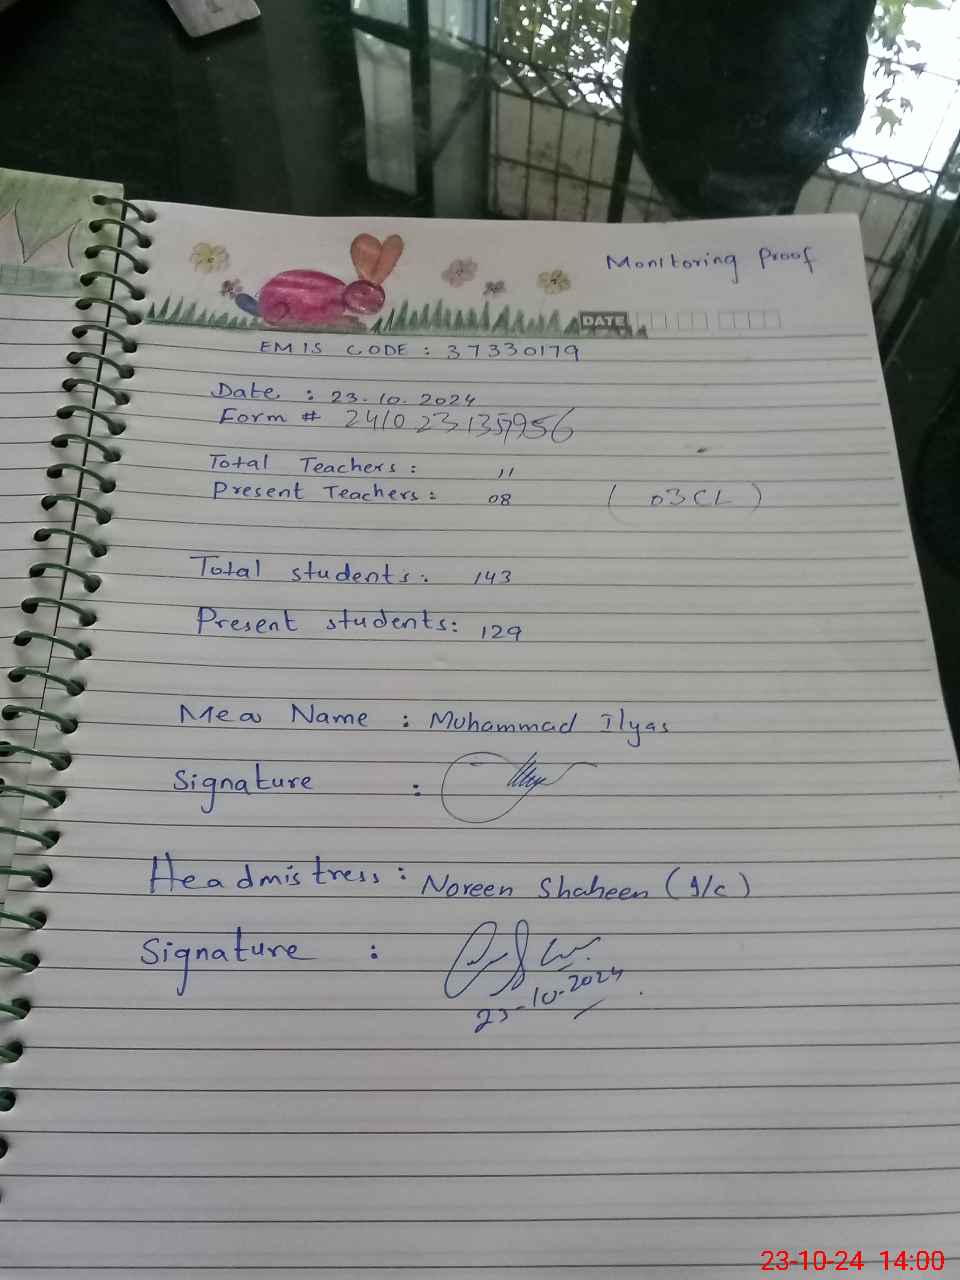 Monitoring Proof
DATE
EMIS CODE : 37330179
Date : 23.10.2024
Form # 241023135956
Total Teachers : 11
Present Teachers : 08 ( 03 CL )
Total students : 143
Present students : 129
Mea Name : Muhammad Ilyas
Signature :
Headmistress : Noreen Shaheen (I/C)
Signature :
23-10-2024
23-10-24 14:00